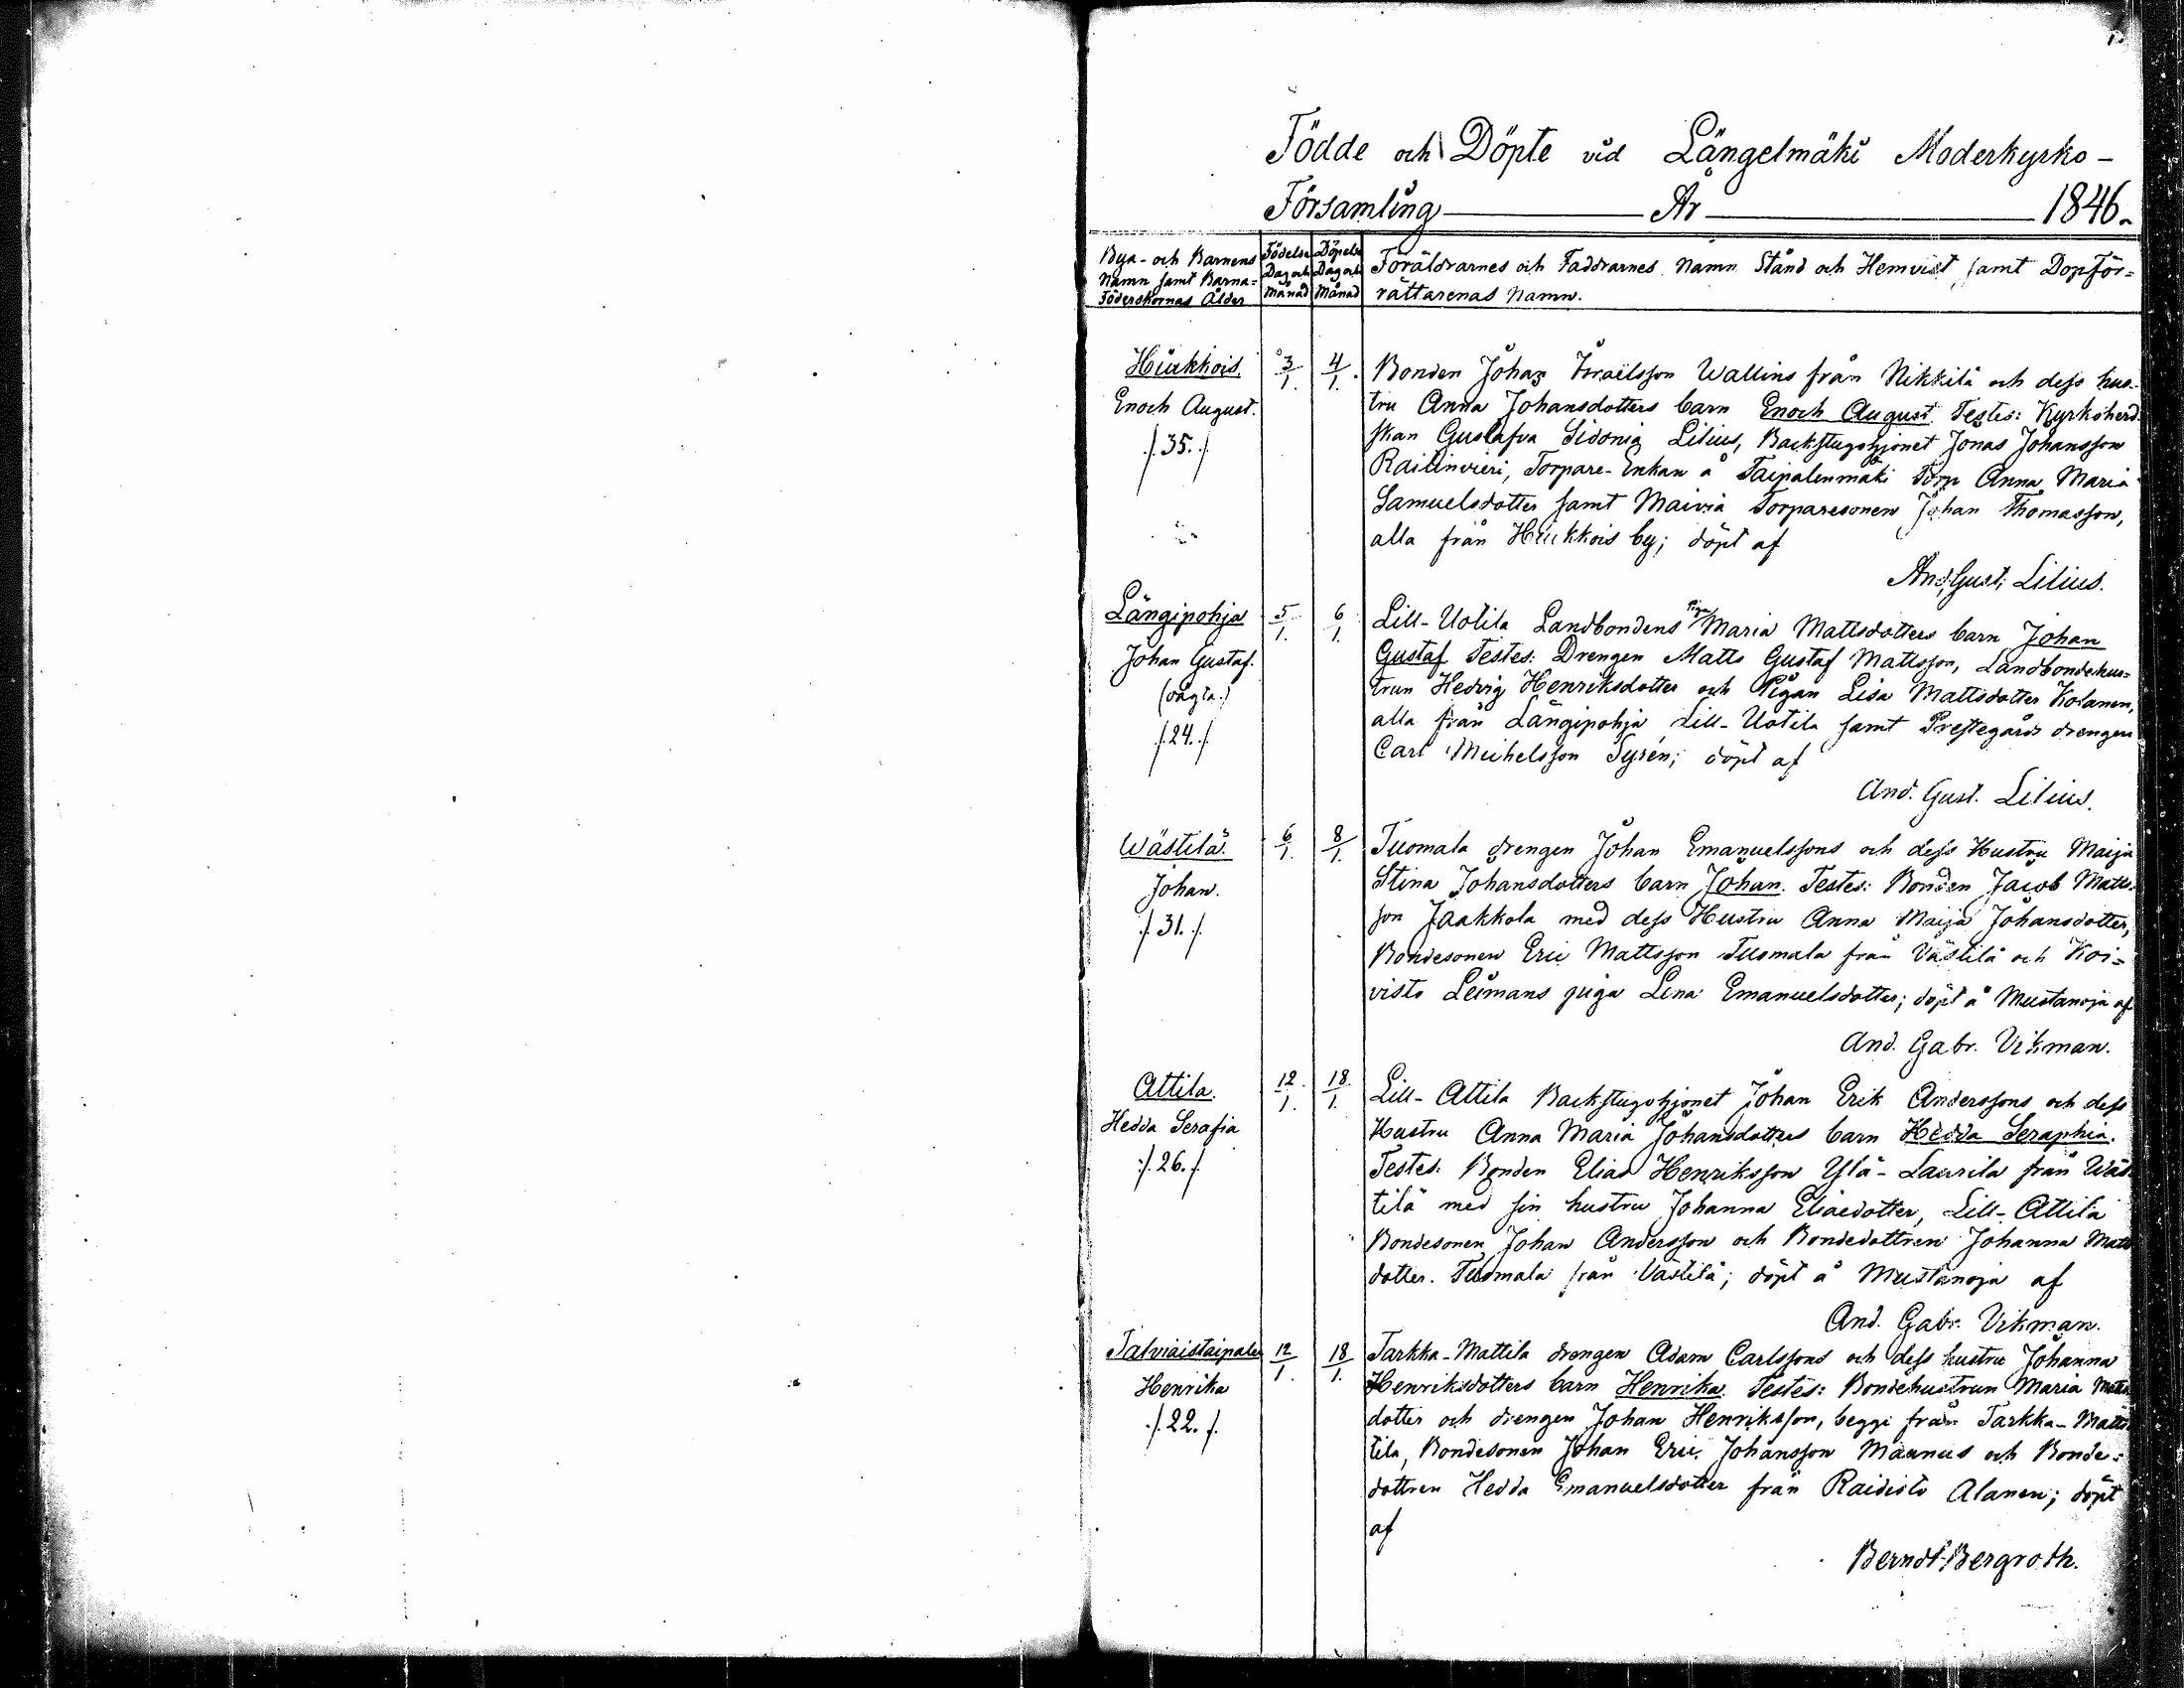 Födde och Döpte vid Längelmäki Moderkyrko-
Församling År 1846.
Bya- och Barnens Namn samt Barna-Föderskornas Ålder
Födelse Dag och Månad
Döpelse Dag och Månad
Föräldrarnes och Faddrarnes Namn Stånd och Hemvist samt Dopför=
rättarenas Namn.
Hiukkois.
Enoch August.
/.35./
3/1.
4/1.
Bonden Johan Israëlsson Wallins från Nikkilä och dess hus-
tru Anna Johansdotters barn Enoch August. Testes: Kyrkoherd-
skan Gustafva Sidonia Lilius, Backstugohjonet Jonas Johansson
Railinvieri, Torpare-Enkan å Taipalenmäki Torp Anna Maria
Samuelsdotter samt Maivia Torparesonen Johan Thomasson,
alla från Hiukkois by; döpt af
And. Gust. Lilius.
Längipohja
Johan Gustaf.
(oägta.)
/.24./
5/1.
6/1.
Lill-Uotila Landbondens Piga Maria Mattsdotters barn Johan
Gustaf Testes: Drengen Matts Gustaf Mattsson, Landbondehus=
trun Hedvig Henriksdotter och Pigan Lisa Mattsdotter Kolanen,
alla från Längipohja Lill-Uotila samt Prestegårds drengen
Carl Michelsson Syrén; döpt af
And. Gust. Lilius.
Wästilä.
Johan.
/.31./
6/1.
8/1.
Tuomala drengen Johan Emanuelssons och dess Hustru Maija
Stina Johansdotters barn Johan. Testes: Bonden Jacob Matts-
son Jaakkola med dess Hustru Anna Maija Johansdotter,
Bondesonen Eric Mattsson Tuomala från Västilä och Koi=
visto Leimans piga Lena Emanuelsdotter; döpt å Mustanoja af
And. Gabr. Vikman.
Attila.
Hedda Serafia
/.26./
12/1.
18/1.
Lill-Attila Backstugohjonet Johan Erik Anderssons och dess
Hustru Anna Maria Johansdotters barn Hedda Seraphia.
Testes: Bonden Elias Henriksson Ylä-Laurila från Wäs-
tilä med sin hustru Johanna Eliaedotter, Lill-Attila
Bondesonen Johan Andersson och Bondedottren Johanna Matts
dotter. Tuomala från Västilä; döpt å Mustanoja af
And. Gabr. Vikman.
Talviaistaipale
Henrika
/.22./
12/1.
18/1.
Tarkka-Mattila drengen Adam Carlssons och dess hustru Johanna
Henriksdotters barn Henrika. Testes: Bondehustrun Maria Matts
dotter och drengen Johan Henriksson, begge från Tarkka-Mat-
tila, Bondesonen Johan Eric Johansson Maunus och Bonde=
dottren Hedda Emanuelsdotter från Raidisto Alanen; döpt
af
Berndt Bergroth.